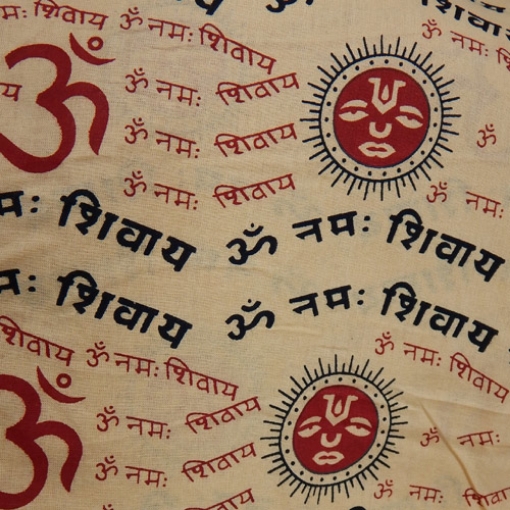 नमः शिवाय ॐ नमः शिवाय ॐ नमः
ॐ
ॐ नमः शिवाय
ॐ नमः शिवाय ॐ
ॐ नमः शिवाय ॐ नमः
मः शिवाय ॐ नमः शिवाय
मः शिवाय ॐ नमः शिवाय
शिवाय ॐ नमः शिवाय ॐ नमः शिवाय
ॐ
ॐ नमः शिवाय
ॐ नमः शिवाय ॐ नमः
ॐ नमः